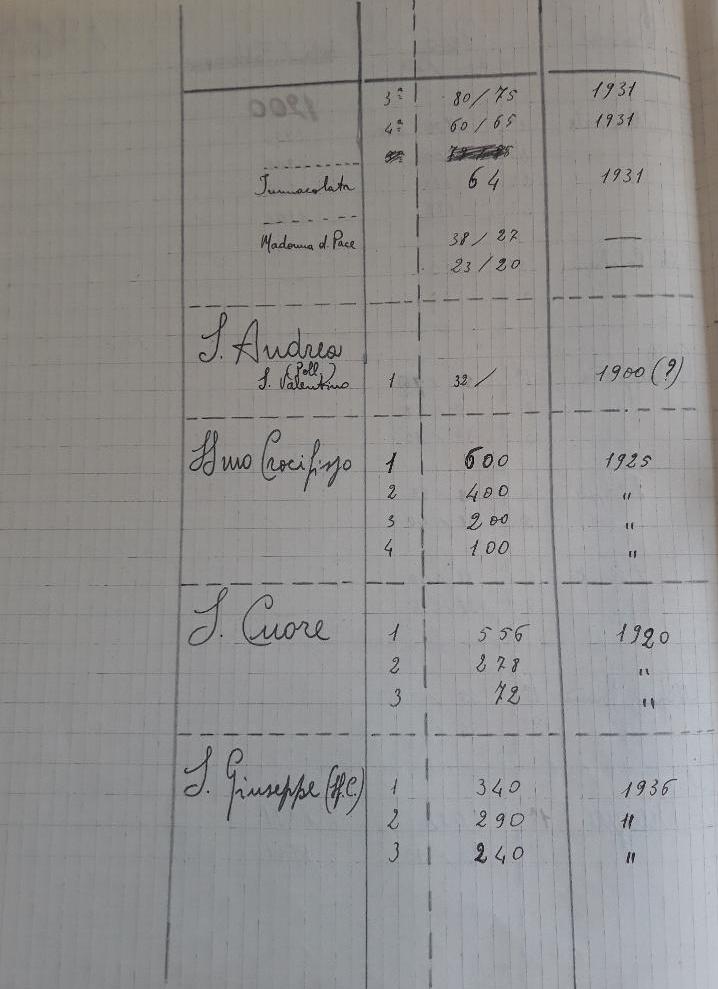 3ª 80/75 1931
4ª 60/65 1931
Immacolata 64 1931
Madonna d. Pace 38/27 —
23/20 —
S. Andrea
(Poll)
S. Valentino 1 32/ 1900(?)
SSmo Crocifisso 1 600 1925
2 400 "
3 200 "
4 100 "
S. Cuore 1 556 1920
2 278 "
3 72 "
S. Giuseppe (SS.C.) 1 340 1936
2 290 "
3 240 "